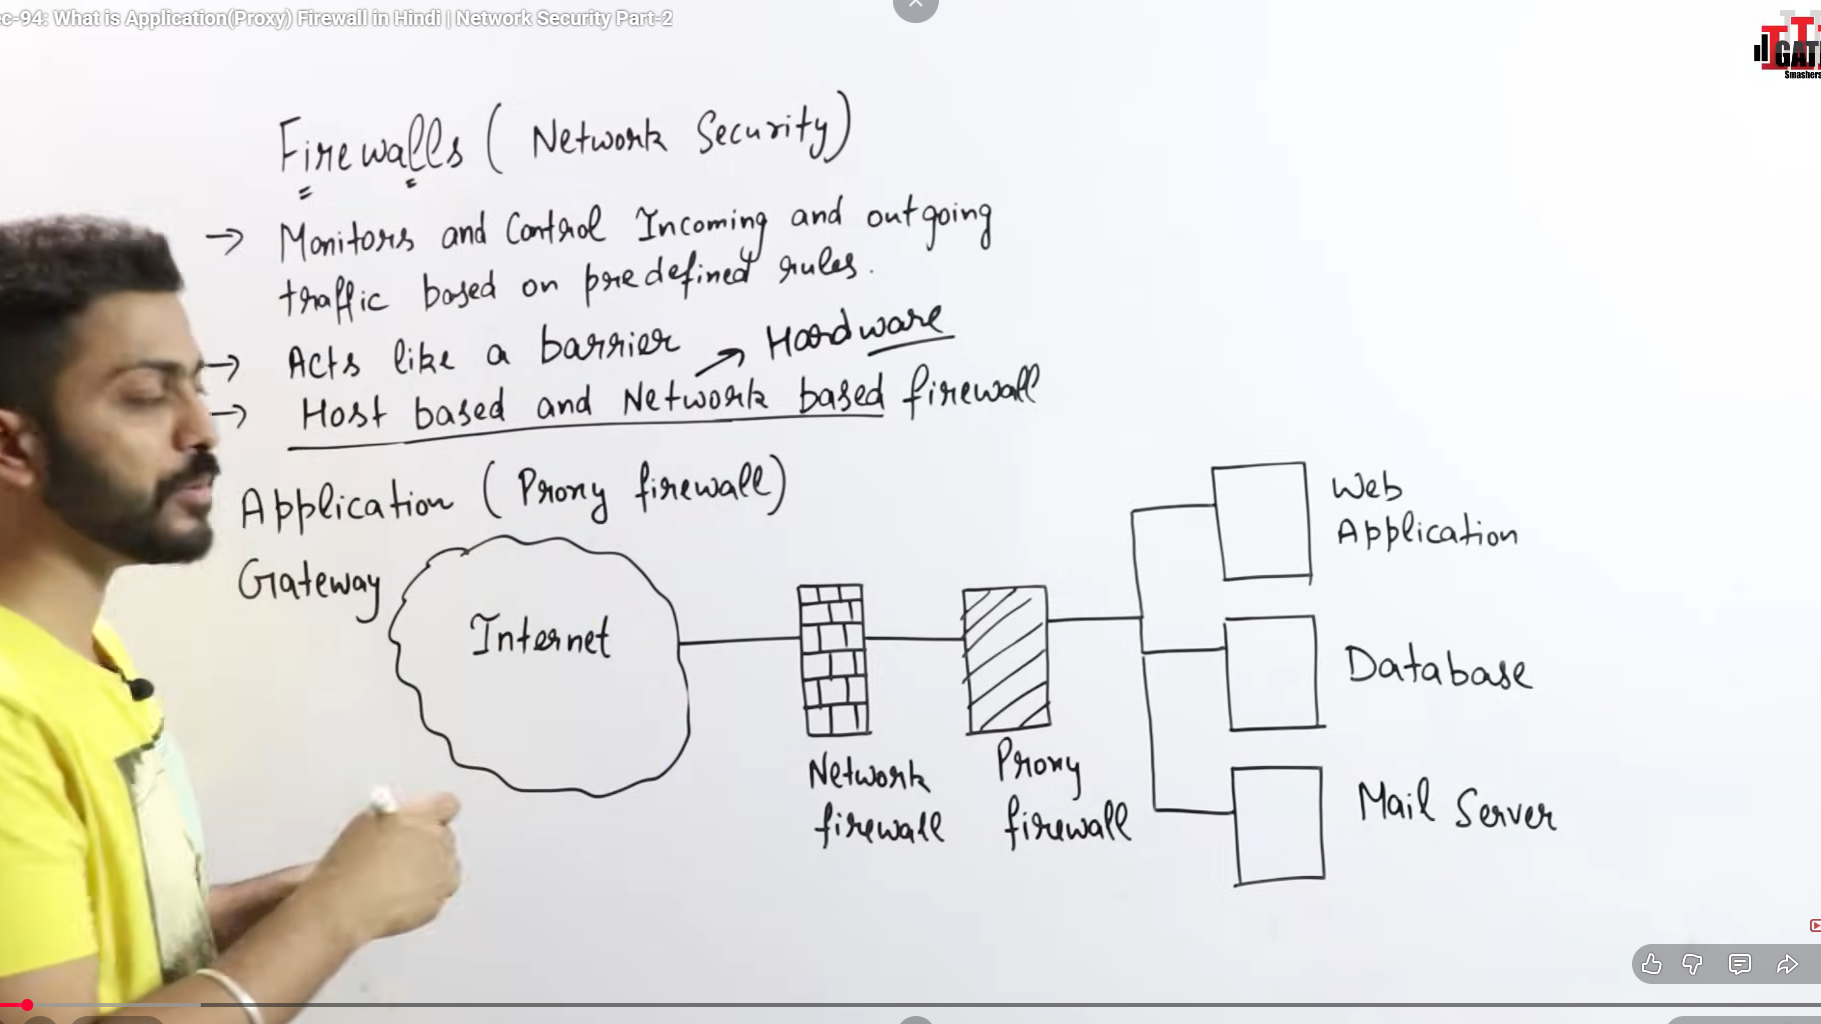 c-94: What is Application(Proxy) Firewall in Hindi | Network Security Part-2
GATE
Smashers
Firewalls ( Network Security)
→ Monitors and Control Incoming and outgoing
traffic based on predefined rules.
→ Acts like a barrier → Hardware
→ Host based and Network based firewall
Application ( Proxy firewall)
Gateway
Internet
Network
firewall
Proxy
firewall
Web
Application
Database
Mail Server